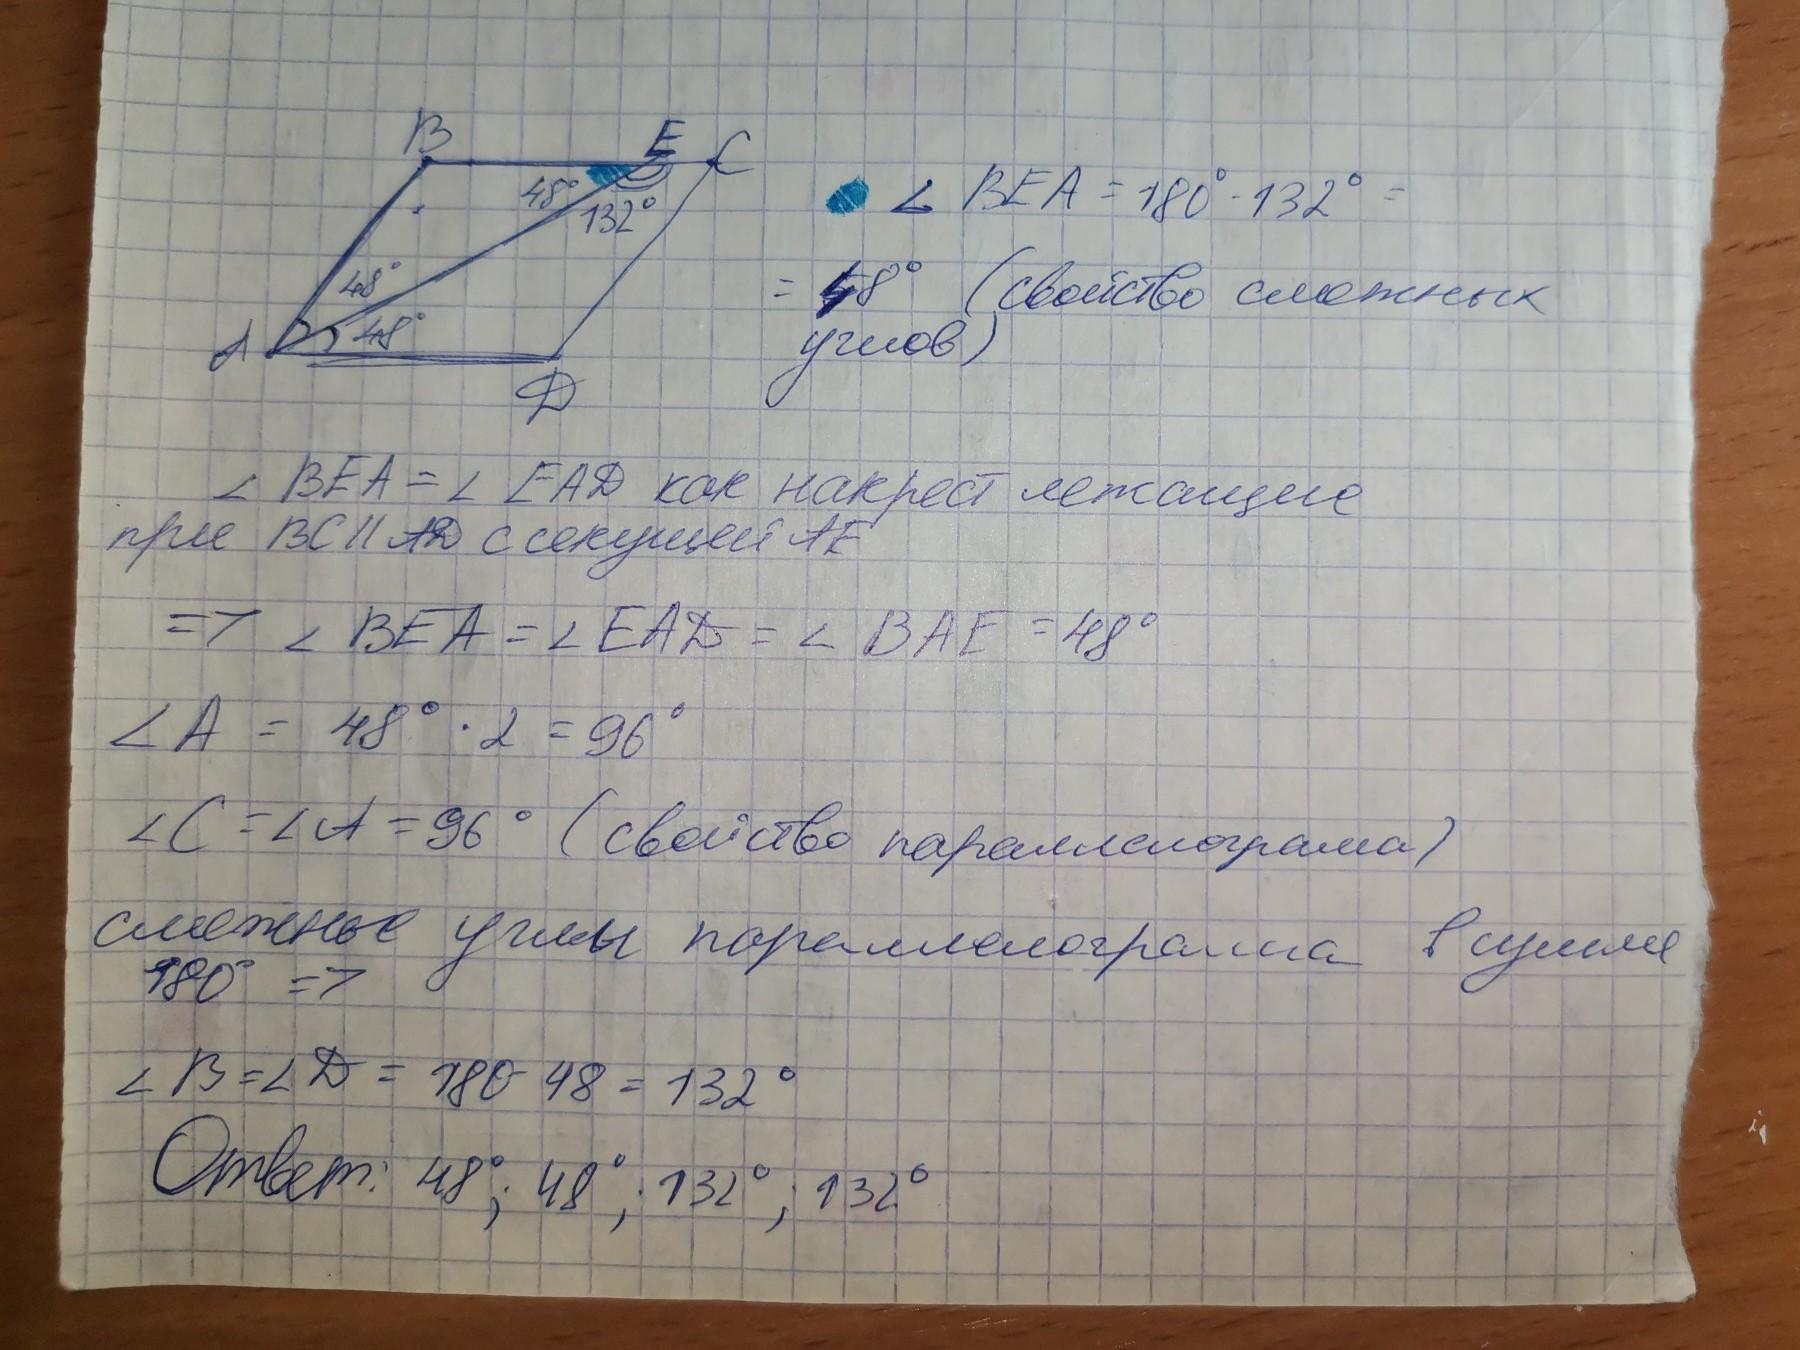 B E C
48° 132°
∠ BEA = 180° - 132° =
48°
= 48° (свойство смежных
углов)
A 48°
D
∠ BEA = ∠ EAD как накрест лежащие
при BC || AD с секущей AE
=> ∠ BEA = ∠ EAD = ∠ BAE = 48°
∠ A = 48° · 2 = 96°
∠C = ∠A = 96° (свойство параллелограма)
смежные углы параллелограмма в сумме
180° =>
∠ B = ∠ D = 180 - 48 = 132°
Ответ: 48°; 48°; 132°; 132°